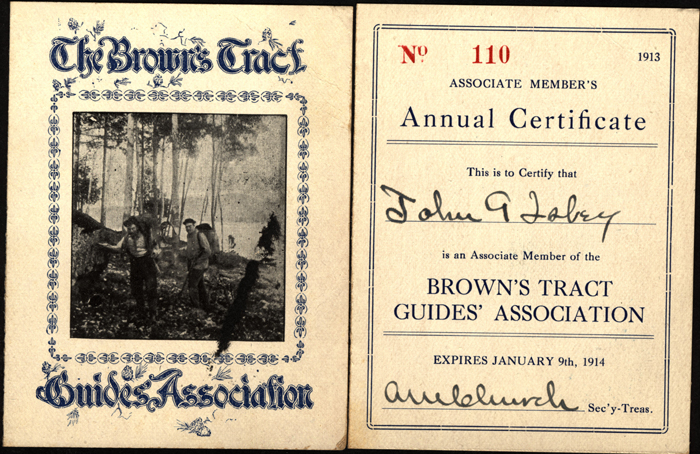 The Brown's Tract
Guides' Association
No 110 1913
ASSOCIATE MEMBER'S
Annual Certificate
This is to Certify that
John G
is an Associate Member of the
BROWN'S TRACT
GUIDES' ASSOCIATION
EXPIRES JANUARY 9th, 1914
Church Sec'y-Treas.